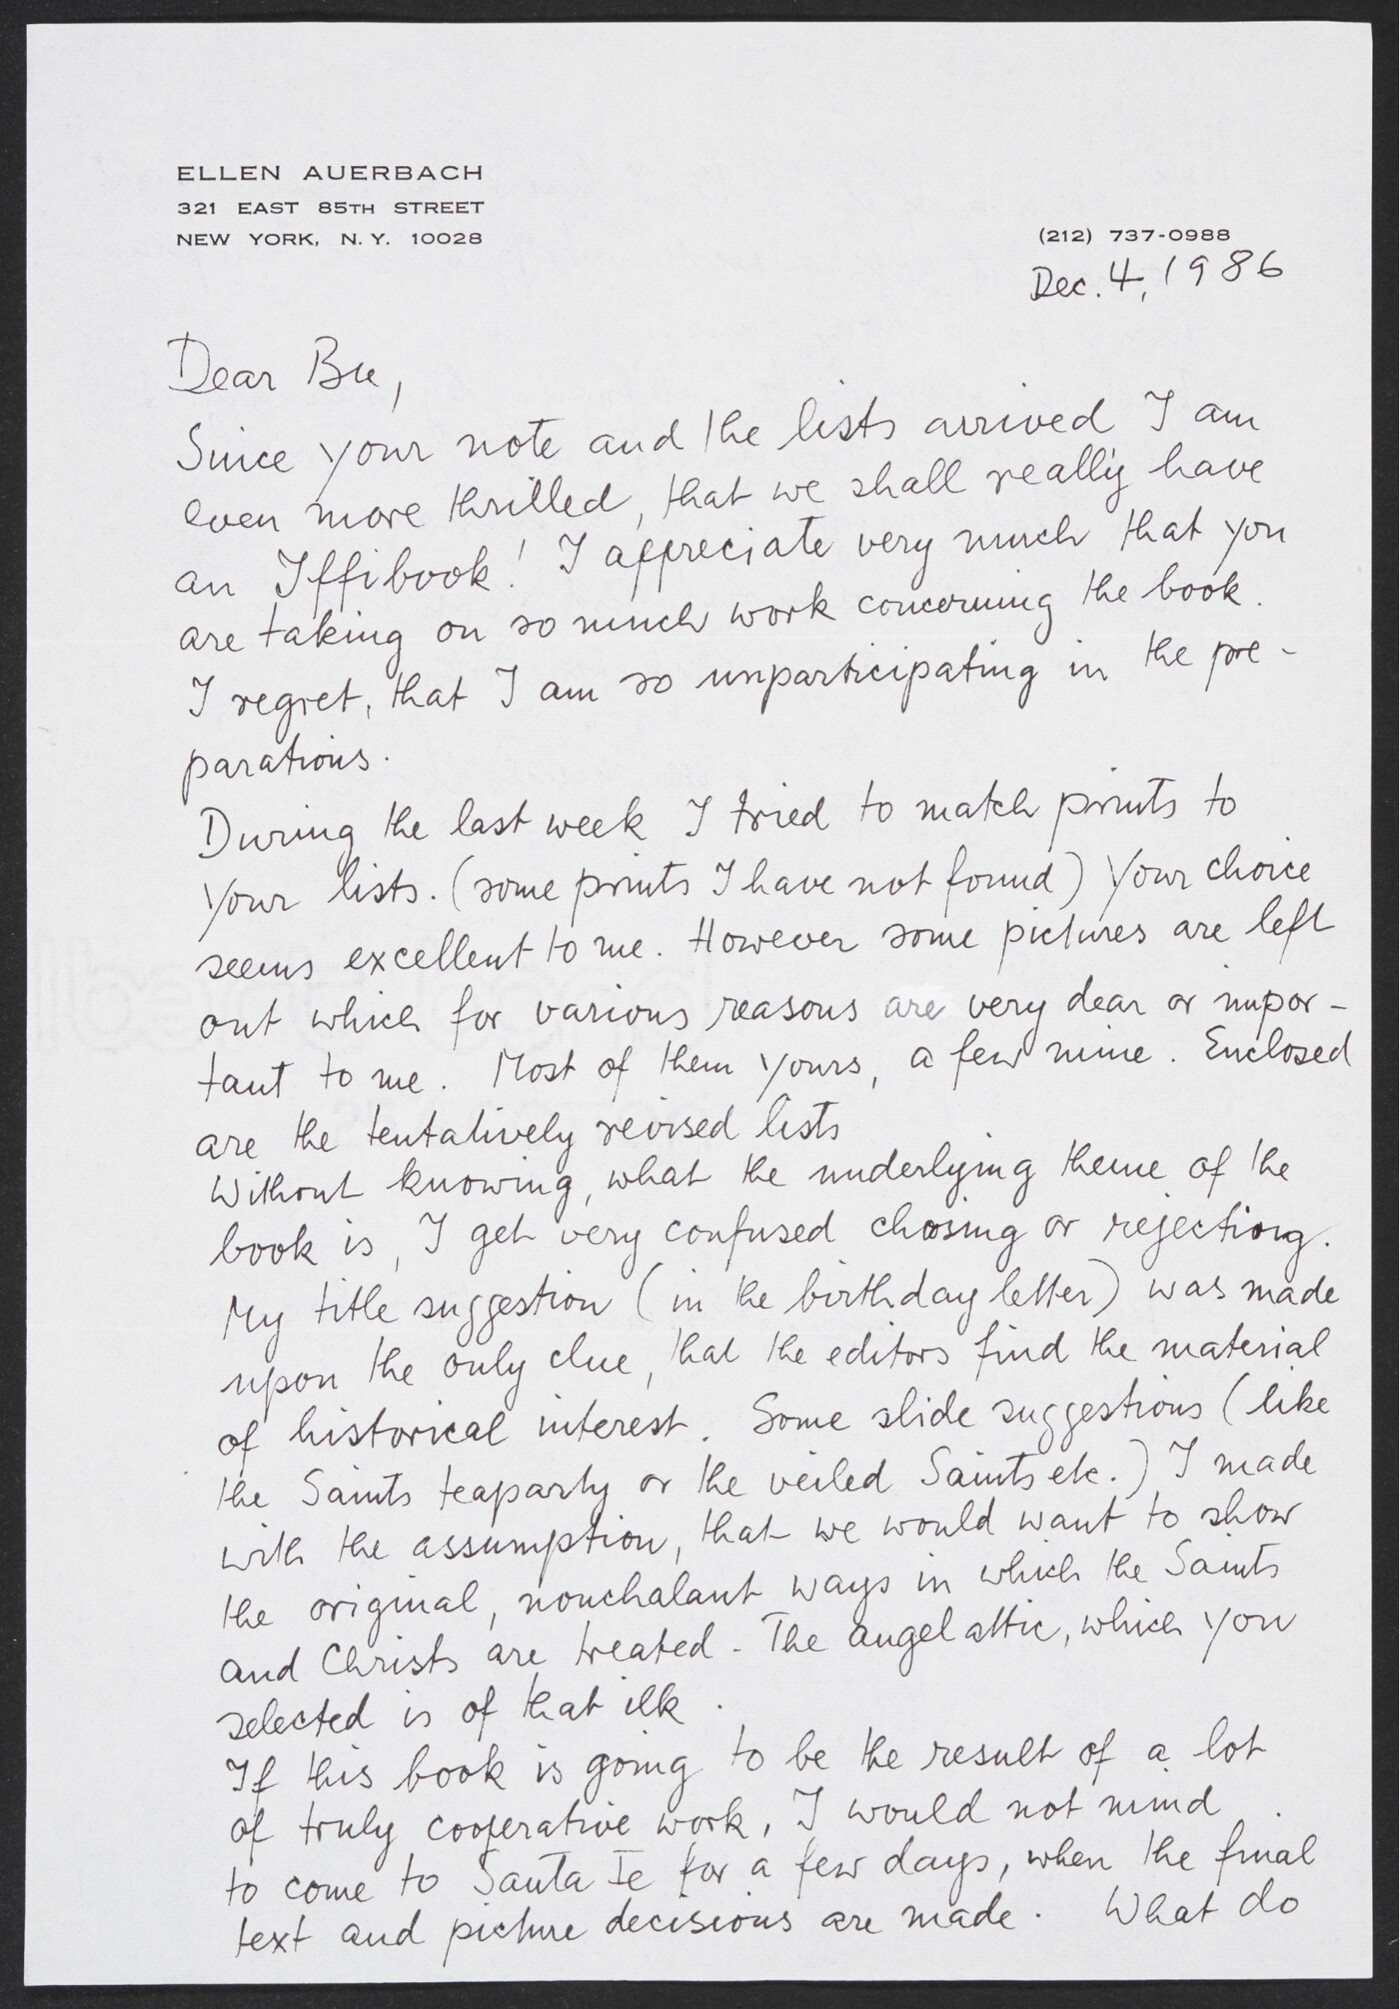 ELLEN AUERBACH
321 EAST 85TH STREET
NEW YORK, N. Y. 10028
(212) 737-0988
Dec. 4, 1986
Dear Bu,
Since your note and the lists arrived I am
even more thrilled, that we shall really have
an Iffibook! I appreciate very much that you
are taking on so much work concerning the book.
I regret, that I am so unparticipating in the pre-
parations.
During the last week I tried to match prints to
your lists. (some prints I have not found) Your choice
seems excellent to me. However some pictures are left
out which for various reasons are very dear or impor-
tant to me. Most of them yours, a few mine. Enclosed
are the tentatively revised lists
Without knowing, what the underlying theme of the
book is, I get very confused chosing or rejecting.
My title suggestion (in the birthday letter) was made
upon the only clue, that the editors find the material
of historical interest. Some slide suggestions (like
the Saints teaparty or the veiled Saints etc.) I made
with the assumption, that we would want to show
the original, nonchalant ways in which the Saints
and Christs are treated - The angel attic, which you
selected is of that ilk.
If this book is going to be the result of a lot
of truly cooperative work, I would not mind
to come to Santa Fe for a few days, when the final
text and picture decisions are made. What do